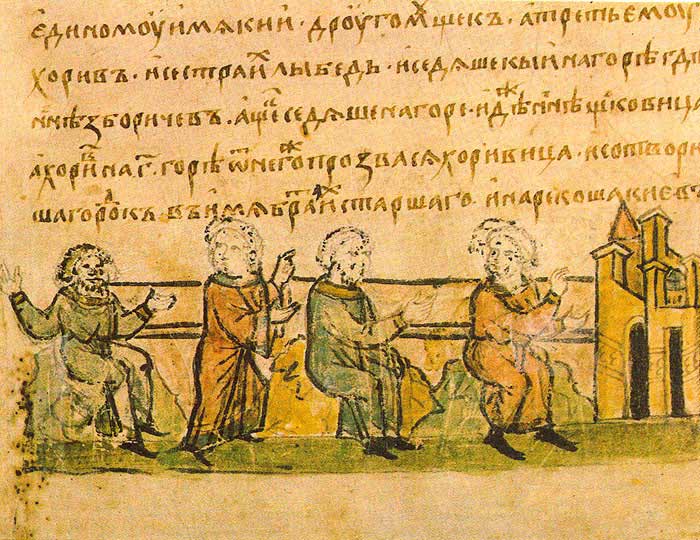 единомоу имѧ кии · дроугом щекъ · а третьемоу
хоривъ · и сестра и лыбедь · и седѧше кыи на горѣ гдѣ
ннѣ зборичевъ · а щекъ седѧше на горе · идеже ннѣ щковица
а хорив на г горѣ ѿ него же прозвасѧ хоривица · и сотвори
ша городокъ въ имѧ брата и старшаго и нарекоша киевъ